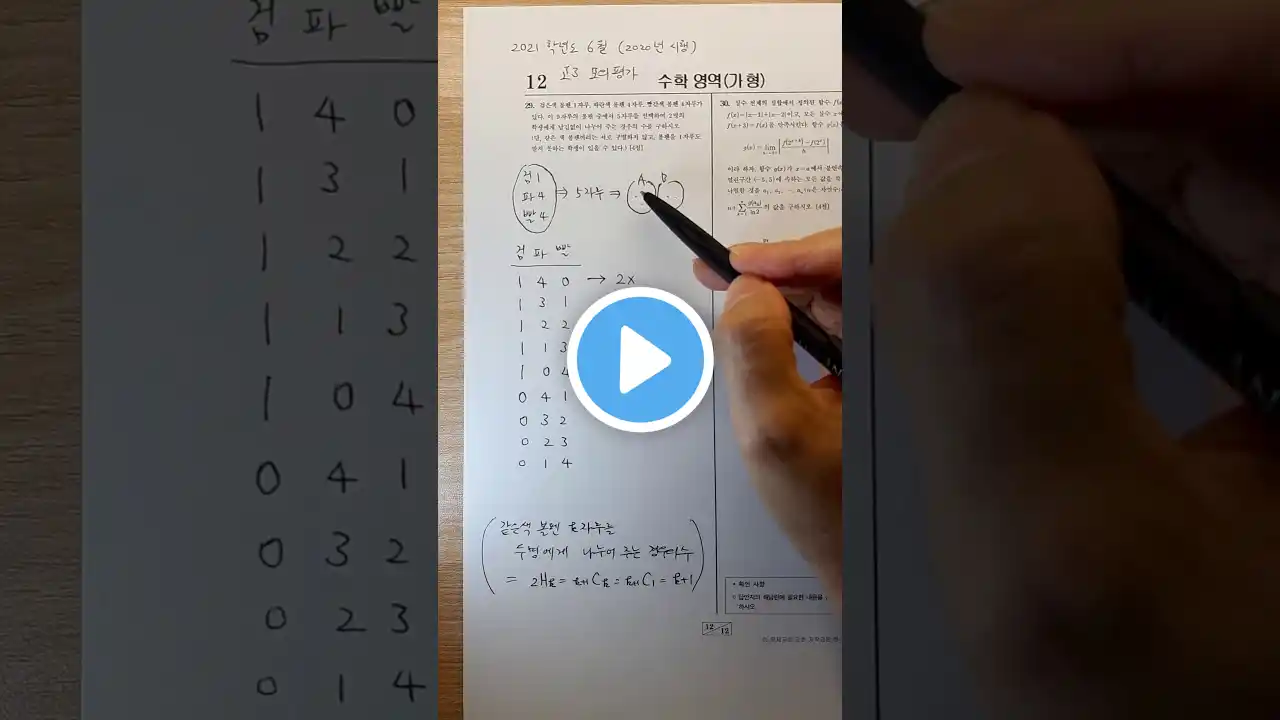 검 파 빨
1 4 0
1 3 1
1 2 2
1 1 3
1 0 4
0 4 1
0 3 2
0 2 3
0 1 4
2021 학년도 6월 (2020년 시행)
12 고3 모의평가 수학 영역(가형)
29. 검은색 볼펜 1자루, 파란색 볼펜 4자루, 빨간색 볼펜 4자루가
있다. 이 9자루의 볼펜 중에서 5자루를 선택하여 2명의
학생에게 남김없이 나누어 주는 경우의 수를 구하시오.
(단, 같은 색 볼펜끼리는 서로 구별하지 않고, 볼펜을 1자루도
받지 못하는 학생이 있을 수 있다.) [4점]
검 1
파 4 ⇒ 5자루 ⇒ A B
빨 4
검 파 빨
1 4 0 → 2×
1 3 1
1 2 2
1 1 3
1 0 4
0 4 1
0 3 2
0 2 3
0 1 4
같은색 볼펜 k자루를
두명에게 나누어 주는 경우의수
= 2Hk = k+1Ck = k+1C1 = k+1
30. 실수 전체의 집합에서 정의된 함수
f(x)=|x-1|+|x-2|이고, 모든 실수
f(x+3)=f(x)를 만족시킨다. 함수
이라 하자. 함수 g(x)가 x=a에서
열린구간 (-5, 5)에 속하는 모든 값을
나열한 것을
의 값을 구하시오. [4점]
* 확인 사항
하시오.
12/12